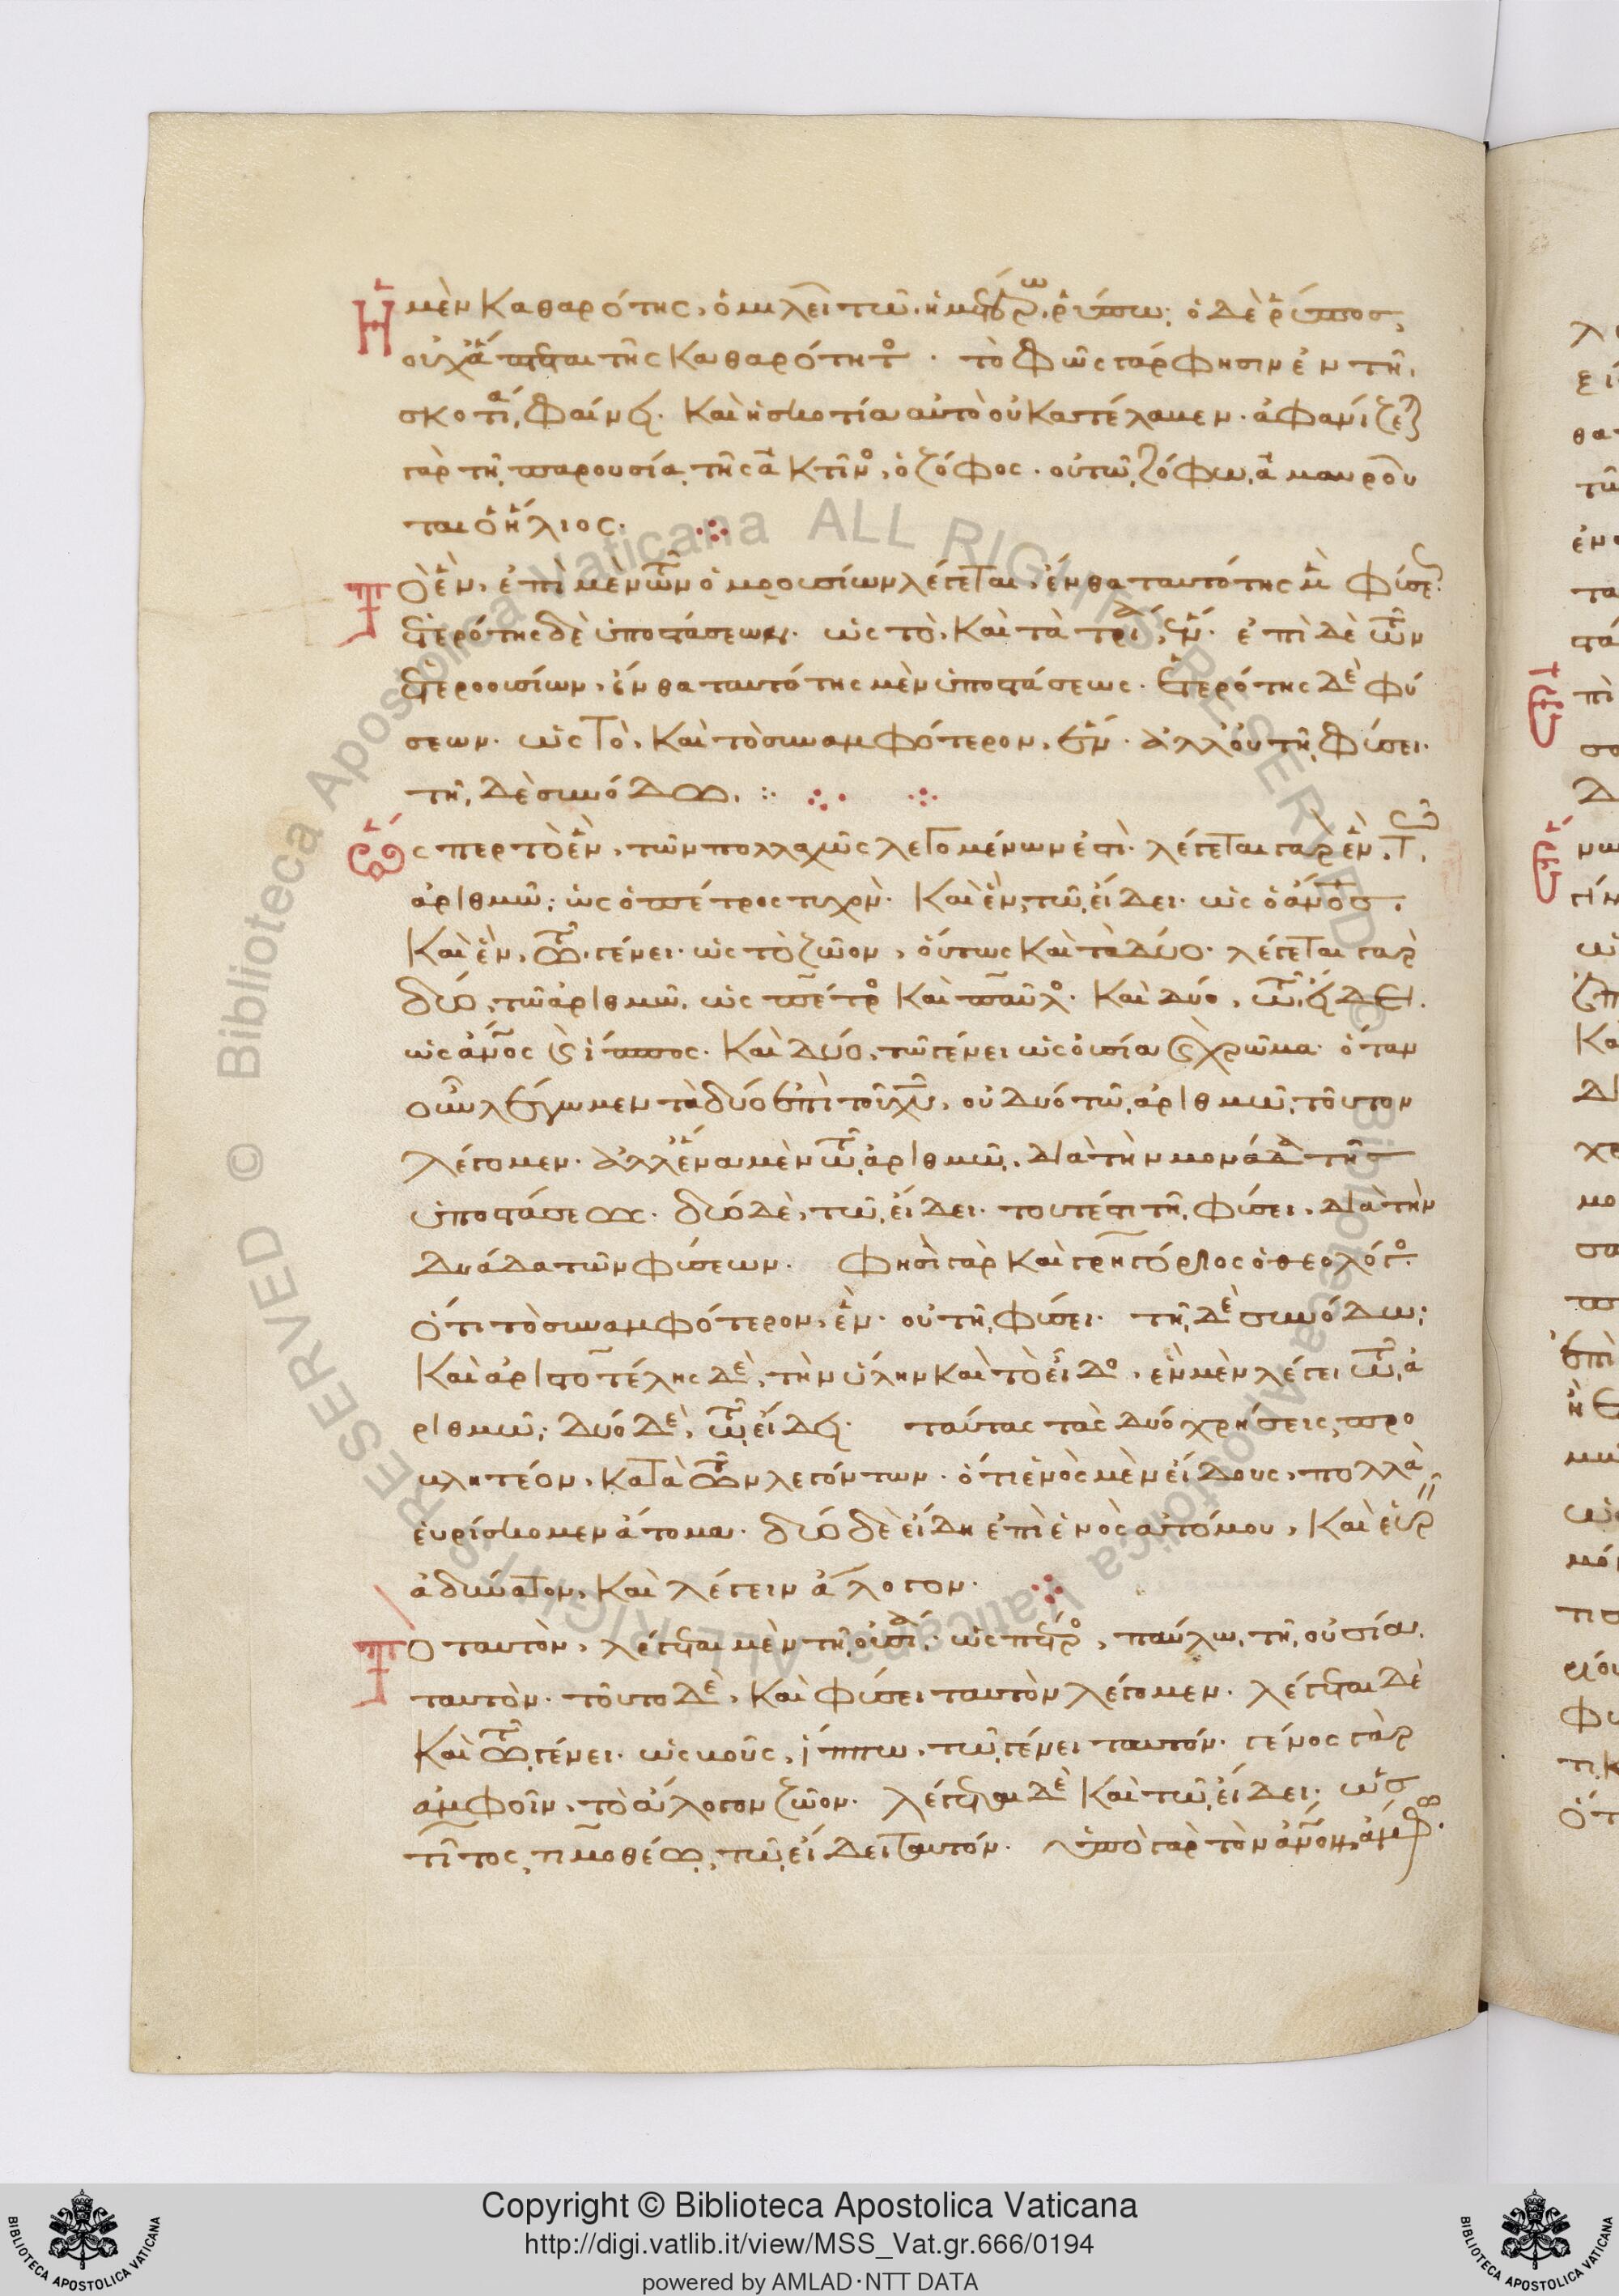 Ἡ μὲν καθαρότης, ὁμιλεῖ τῷ ἡμετέρῳ ῥύπῳ· ὁ δὲ ῥύπος,
οὐχ ἅπτεται τῆς καθαρότητος. τὸ φῶς γάρ φησιν ἐν τῇ
σκοτίᾳ φαίνει. καὶ ἡ σκοτία αὐτὸ οὐ κατέλαβεν. ἀφανίζεται
γὰρ τῇ παρουσίᾳ τῆς ἀκτῖνος, ὁ ζόφος. οὐ τῷ ζόφῳ ἀμαυροῦ
ται ὁ ἥλιος.
Τὸ ἕν, ἐπὶ μὲν τῶν ὁμοουσίων λέγεται, ἔνθα ταυτότης μὲν φύσεως
ἑτερότης δὲ ὑποστάσεων. ὡς τὸ, καὶ τὰ τρία ἕν. ἐπὶ δὲ τῶν
ἑτεροουσίων, ἔνθα ταυτότης μὲν ὑποστάσεως. ἑτερότης δὲ φύ
σεων. ὡς τὸ, καὶ τὸ συναμφότερον, ἕν. ἀλλ' οὐ τῇ φύσει.
τῇ δὲ συνόδῳ.
Ὥσπερ τὸ ἕν, τῶν πολλαχῶς λεγομένων ἐστί. λέγεται γὰρ ἓν, τῷ
ἀριθμῷ· ὡς ὁ πέτρος τυχόν. καὶ ἕν, τῷ εἴδει. ὡς ὁ ἄνος.
καὶ ἕν, τῷ γένει. ὡς τὸ ζῶον, οὕτως καὶ τὰ δύο. λέγεται γὰρ
δύο, τῷ ἀριθμῷ, ὡς πέτρος καὶ παῦλος. καὶ δύο, τῷ εἴδει.
ὡς ἄνος καὶ ἵππος. καὶ δύο, τῷ γένει ὡς οὐσία καὶ χρῶμα. ὅταν
οὖν λέγωμεν τὰ δύο ἐπὶ τοῦ χυ, οὐ δύο τῷ ἀριθμῷ τοῦτον
λέγομεν. ἀλλ' ἕνα μὲν τῷ ἀριθμῷ, διὰ τὴν μονάδα τῆς
ὑποστάσεως. δύο δὲ, τῷ εἴδει. τουτέστι τῇ φύσει, διὰ τὴν
δυάδα τῶν φύσεων. φησὶ γὰρ καὶ γρηγόριος ὁ θεολόγος.
ὅτι τὸ συναμφότερον, ἕν. οὐ τῇ φύσει. τῇ δὲ συνόδῳ·
καὶ ἀριστοτέλης δὲ, τὴν ὕλην καὶ τὸ εἶδος, ἓν μὲν λέγει τῷ ἀ
ριθμῷ· δύο δὲ, τῷ εἴδει. ταύτας τὰς δύο χρήσεις, προ
βλητέον, κατὰ τῶν λεγόντων. ὅτι ἑνὸς μὲν εἴδους, πολλὰ
εὑρίσκομεν ἄτομα. δύο δὲ εἴδη ἐπὶ ἑνὸς ἀτόμου, καὶ εὑρεῖν
ἀδύνατον, καὶ λέγειν ἄλογον.
Τὸ ταυτὸν, λέγεται μὲν τῇ οὐσίᾳ. ὡς πέτρος, παύλῳ, τῇ οὐσίᾳ
ταυτὸν. τοῦτο δὲ, καὶ φύσει ταυτὸν λέγομεν. λέγεται δὲ
καὶ τῷ γένει. ὡς βοῦς, ἵππῳ, τῷ γένει ταυτόν. γένος γὰρ
ἀμφοῖν, τὸ ἄλογον ζῶον. λέγεται δὲ καὶ τῷ εἴδει· ὡς
τίτος, τιμοθέῳ, τῷ εἴδει ταυτόν. ὑπὸ γὰρ τὸν ἄνον, ἄμφω.
Copyright © Biblioteca Apostolica Vaticana
http://digi.vatlib.it/view/MSS_Vat.gr.666/0194
powered by AMLAD·NTT DATA